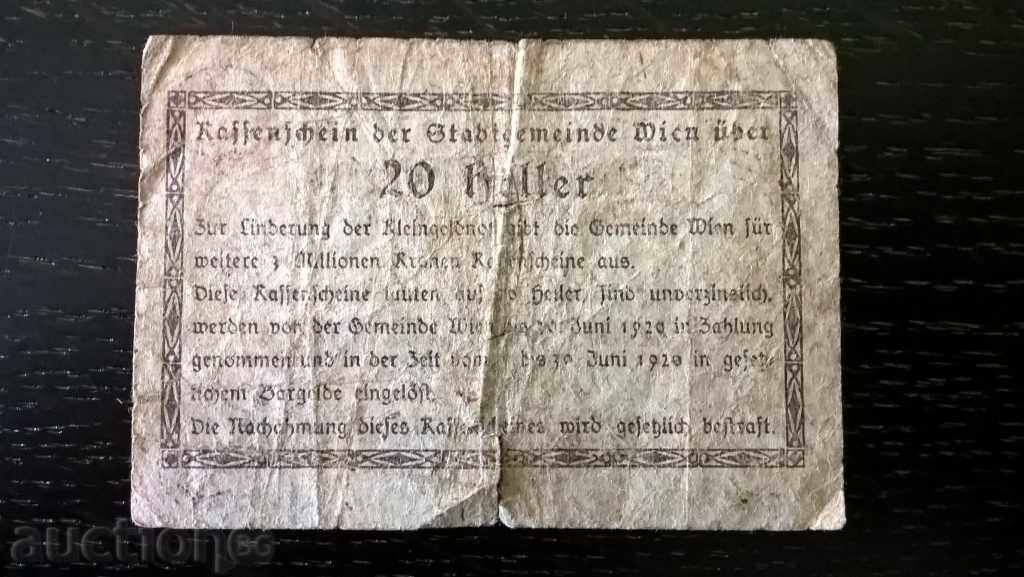 Kassenschein der Stadtgemeinde Wien über
20 Heller
Zur Linderung der Kleingeldnot gibt die Gemeinde Wien für
weitere 3 Millionen Kronen Kassenscheine aus.
Diese Kassenscheine lauten auf Heller, sind unverzinslich,
werden von der Gemeinde Wien Juni 1920 in Zahlung
genommen und in der Zeit vom bis 30. Juni 1920 in gesetz-
lichem Bargelde eingelöst.
Die Nachahmung dieses Kassenscheines wird gesetzlich bestraft.
auction.BG